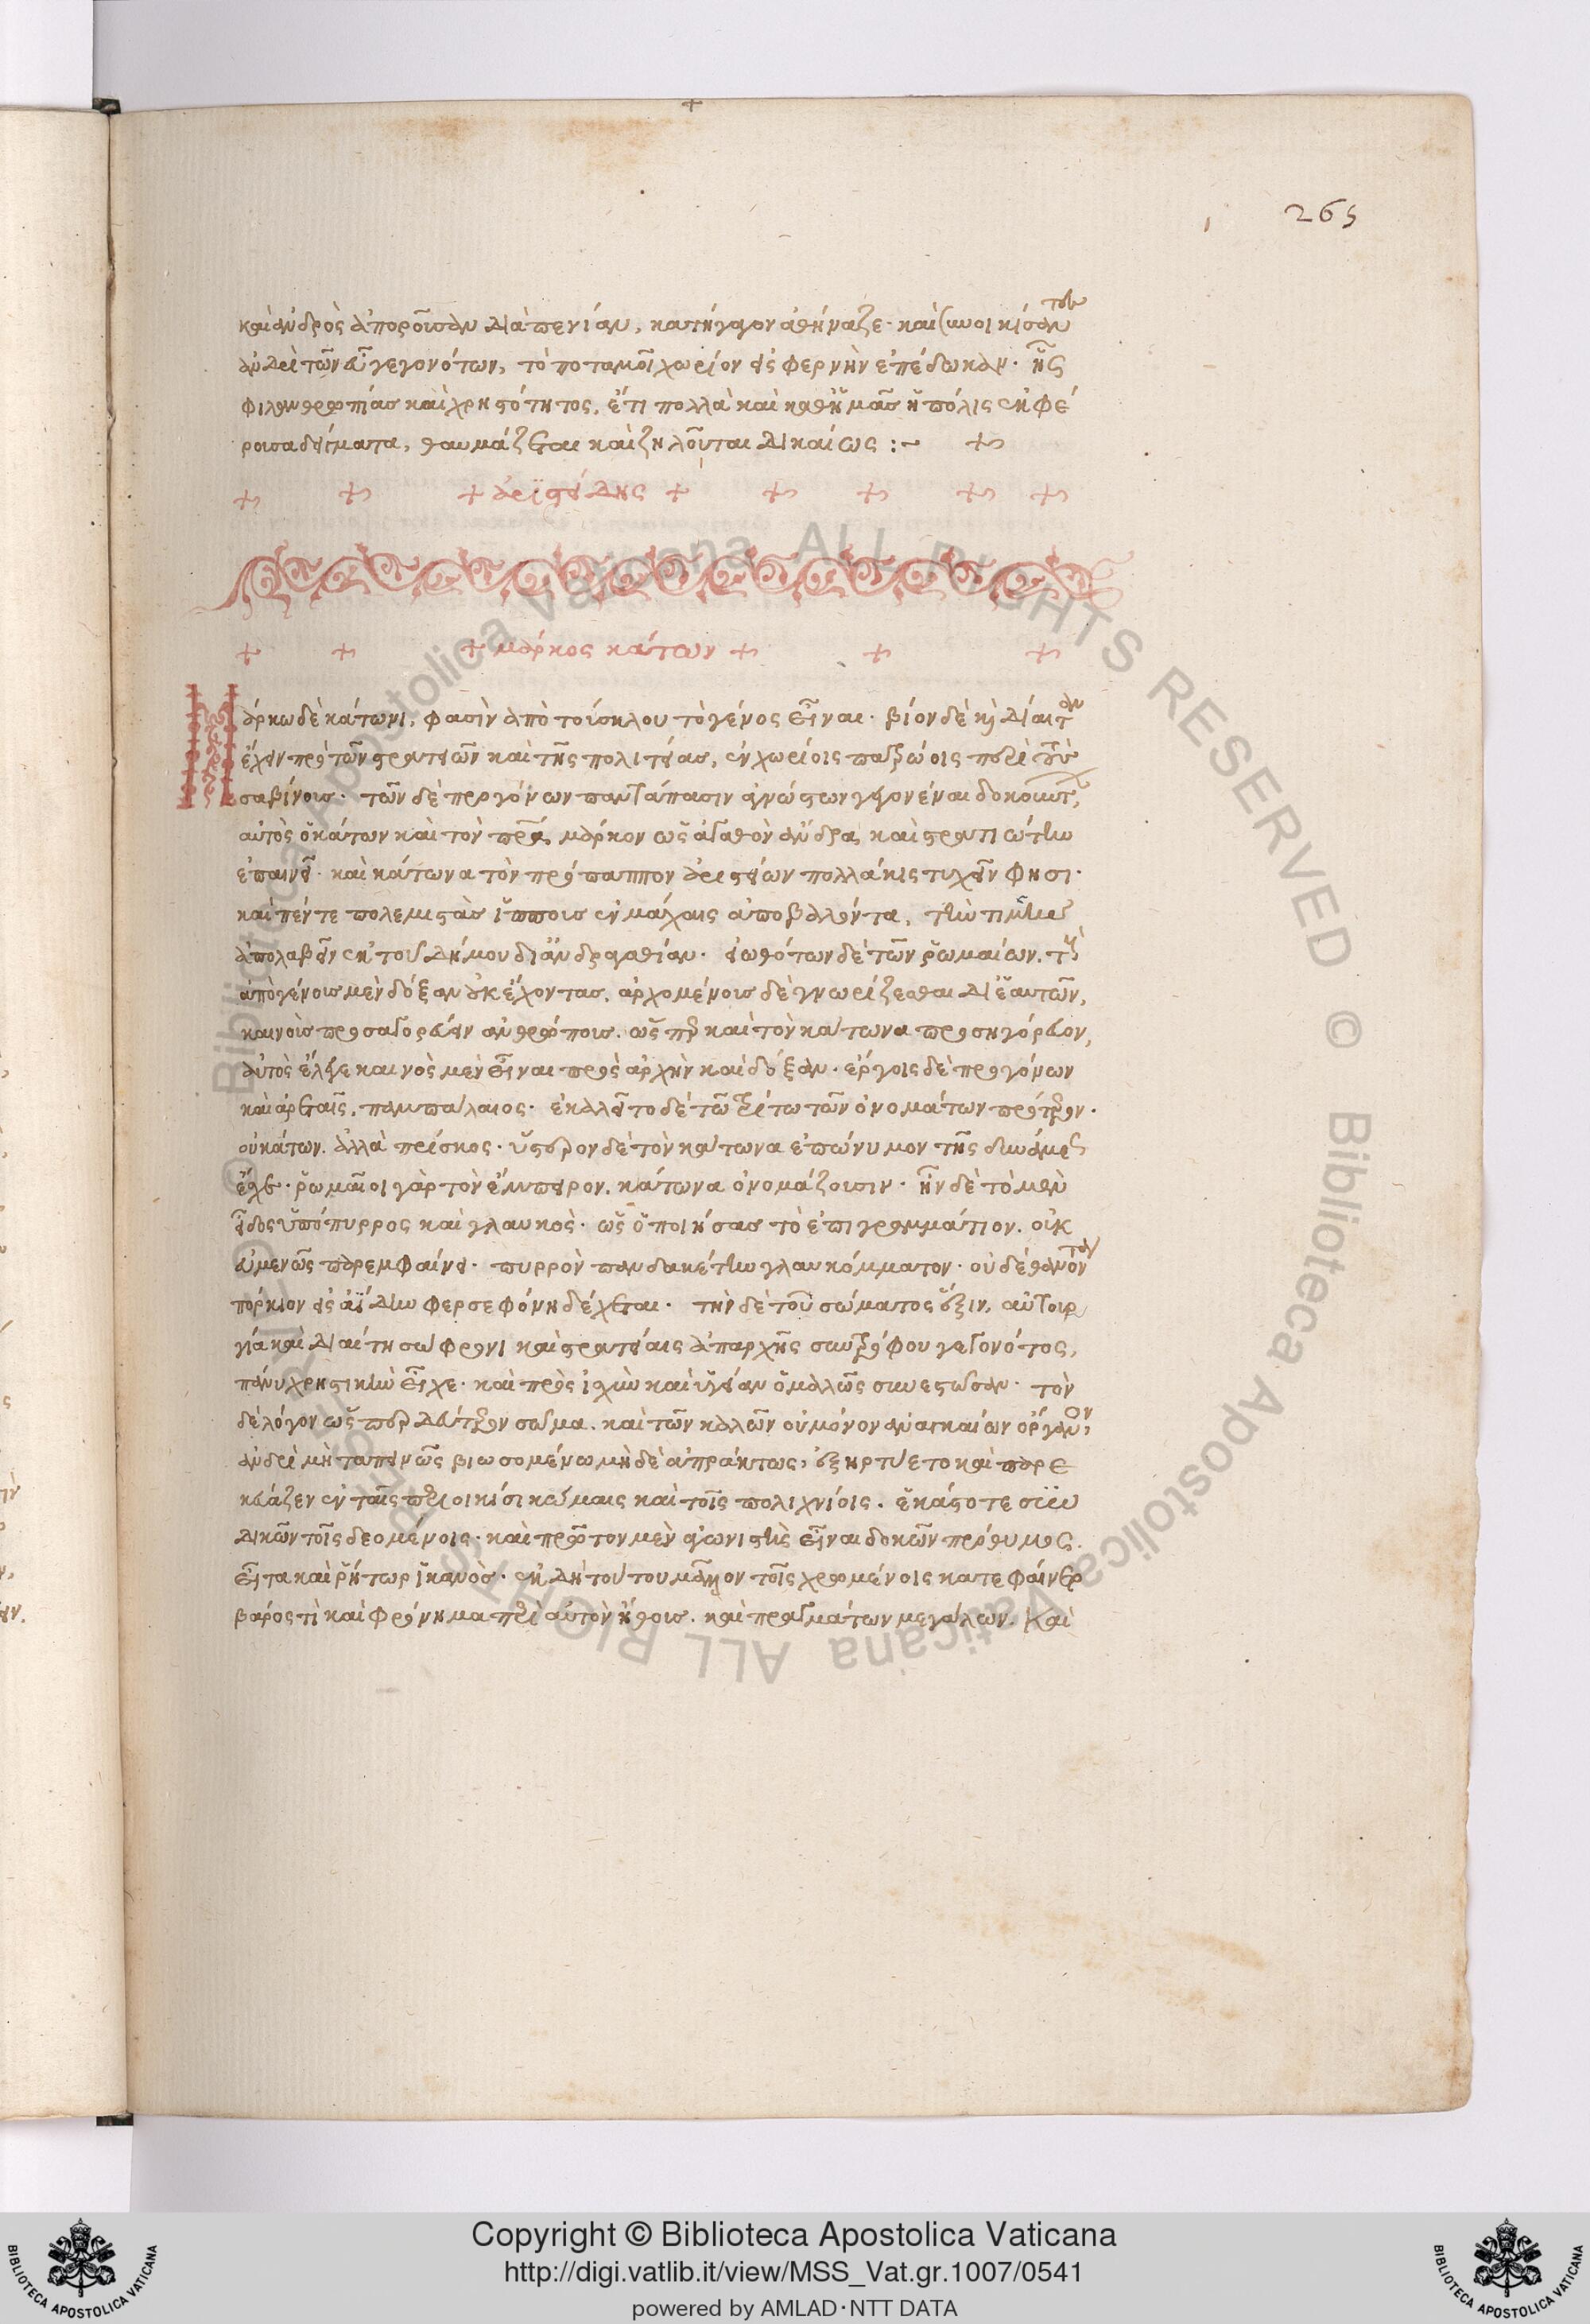 265
καὶ ἀνδρὸς ἀποροῦσαν διὰ πενίαν, κατήγαγον ἀθήναζε· καὶ συνοικίσαντες
ἀνδρὶ τῶν εὖ γεγονότων, τὸ ποταμοῖ χωρίον εἰς φερνὴν ἐπέδωκαν· ἧς
φιλανθρωπίας καὶ χρηστότητος, ἔτι πολλὰ καὶ καθ' ἡμᾶς ἡ πόλις ἐκφέ
ρουσα δείγματα, θαυμάζεται καὶ ζηλοῦται δικαίως :~ +
+ + + ἀριστείδης + + + + +
+ + + μάρκος κάτων + + +
Μάρκω δὲ κάτωνι, φασὶν ἀπὸ τούσκλου τὸ γένος εἶναι· βίον δὲ καὶ δίαιταν
ἔχειν πρὸ τῶν στρατειῶν καὶ τῆς πολιτείας, ἐν χωρίοις πατρώοις περὶ τοὺς
σαβίνους· τῶν δὲ προγόνων παντάπασιν ἀγνώστων γεγονέναι δοκούντων,
αὐτὸς ὁ κάτων καὶ τὸν πατέρα μάρκον ὡς ἀγαθὸν ἄνδρα καὶ στρατιώτην
ἐπαινεῖ· καὶ κάτωνα τὸν πρόπαππον ἀριστείων πολλάκις τυχεῖν φησι·
καὶ πέντε πολεμιστὰς ἵππους ἐν μάχαις ἀποβαλόντα, τὴν τιμὴν
ἀπολαβεῖν ἐκ τοῦ δήμου δι' ἀνδραγαθίαν· εἰωθότων δὲ τῶν ῥωμαίων, τοὺς
ἀπὸ γένους μὲν δόξαν οὐκ ἔχοντας, ἀρχομένους δὲ γνωρίζεσθαι δι' ἑαυτῶν,
καινοὺς προσαγορεύειν ἀνθρώπους. ὥσπερ καὶ τὸν κάτωνα προσηγόρευον,
αὐτὸς ἔλεγε καινὸς μὲν εἶναι πρὸς ἀρχὴν καὶ δόξαν· ἔργοις δὲ προγόνων
καὶ ἀρεταῖς, παμπάλαιος· ἐκαλεῖτο δὲ τῶ τρίτω τῶν ὀνομάτων πρότερον·
οὐ κάτων. ἀλλὰ πρίσκος· ὕστερον δὲ τὸν κάτωνα ἐπώνυμον τῆς δυνάμεως
ἔσχε· ῥωμαῖοι γὰρ τὸν ἔμπειρον, κάτωνα ὀνομάζουσιν· ἦν δὲ τὸ μὲν
εἶδος ὑπόπυρρος καὶ γλαυκὸς· ὡς ὁ ποιήσας τὸ ἐπιγραμμάτιον. οὐκ
εὐμενῶς παρεμφαίνει· πυρρὸν πανδακέτην γλαυκόμματον· οὐδὲ θανόντα
πόρκιον εἰς ἀΐδην φερσεφόνη δέχεται· τὴν δὲ τοῦ σώματος ἕξιν, αὐτουρ
γία καὶ διαίτη σώφρονι καὶ στρατείαις ἀπαρχῆς συντρόφου γεγονότος,
πάνυ χρηστικὴν εἶχε· καὶ πρὸς ἰσχὺν καὶ ὑγείαν ὁμαλῶς συνεστῶσαν· τὸν
δὲ λόγον ὥσπερ δεύτερον σῶμα. καὶ τῶν καλῶν οὐ μόνον ἀναγκαίων ὄργανον,
ἀνδρὶ μὴ ταπεινῶς βιωσομένω μὴ δὲ ἀπράκτως, ἐξηρτύετο καὶ παρε
σκεύαζεν ἐν ταῖς περιοικίσι κώμαις καὶ τοῖς πολιχνίοις. ἑκάστοτε συν
δικῶν τοῖς δεομένοις· καὶ πρῶτον μὲν ἀγωνιστὴς εἶναι δοκῶν πρόθυμος.
εἶτα καὶ ῥήτωρ ἱκανὸς· ἐκ δὴ τούτου μᾶλλον τοῖς χρωμένοις κατεφαίνετο
βάρος τὶ καὶ φρόνημα περὶ αὐτὸν ἤθους. καὶ πραγμάτων μεγάλων. Καὶ
Copyright © Biblioteca Apostolica Vaticana
http://digi.vatlib.it/view/MSS_Vat.gr.1007/0541
powered by AMLAD·NTT DATA
BIBLIOTECA APOSTOLICA VATICANA
BIBLIOTECA APOSTOLICA VATICANA
© Biblioteca Apostolica Vaticana ALL RIGHTS RESERVED © Biblioteca Apostolica Vaticana ALL RIGHTS RESERVED